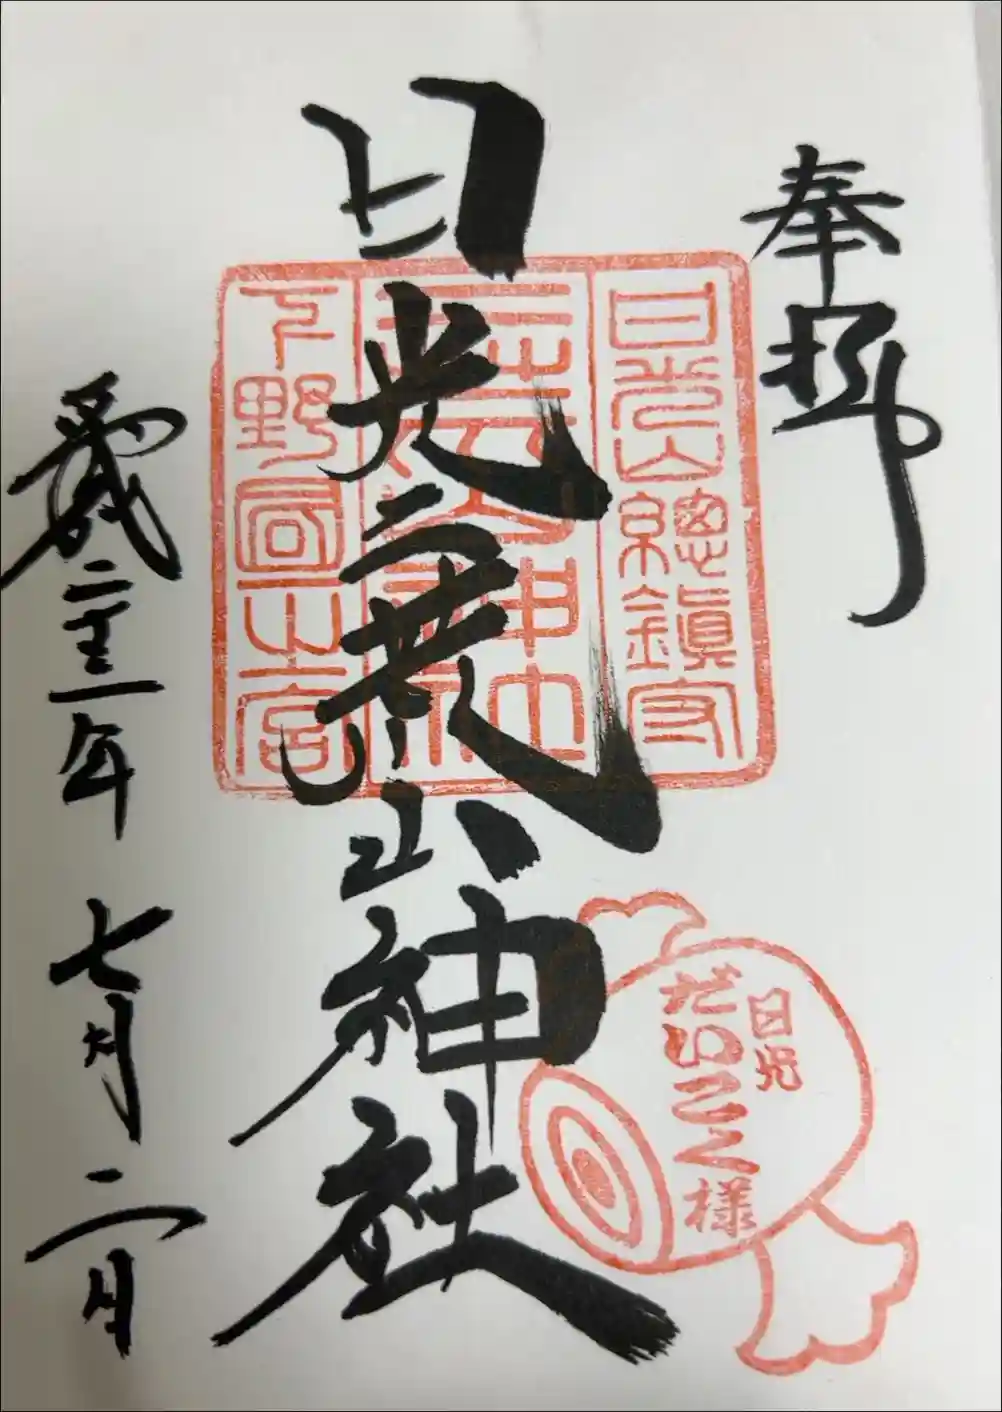 奉拝
日光山總鎮守
二荒山神社
下野國一之宮
日光二荒山神社
日光
だいこく様
平成二十三年 七月二日